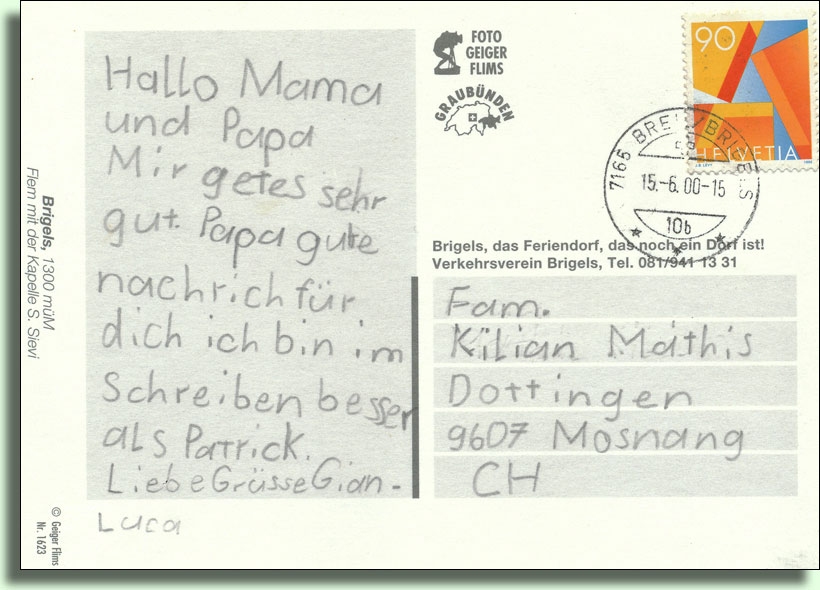 Hallo Mama
und Papa
Mir getes sehr
gut. Papa gute
nachrich für
dich ich bin im
Schreiben besser
als Patrick.
Liebe Grüsse Gian-
Luca
FOTO
GEIGER
FLIMS
GRAUBÜNDEN
90
HELVETIA
7165
15.-6.00-15
10b
Brigels, das Feriendorf, das noch ein Dorf ist!
Verkehrsverein Brigels, Tel. 081/941 13 31
Fam.
Kilian Mathis
Dottingen
9607 Mosnang
CH
Brigels, 1300 müM
Flem mit der Kapelle S. Sievi
© Geiger Flims
Nr. 1623